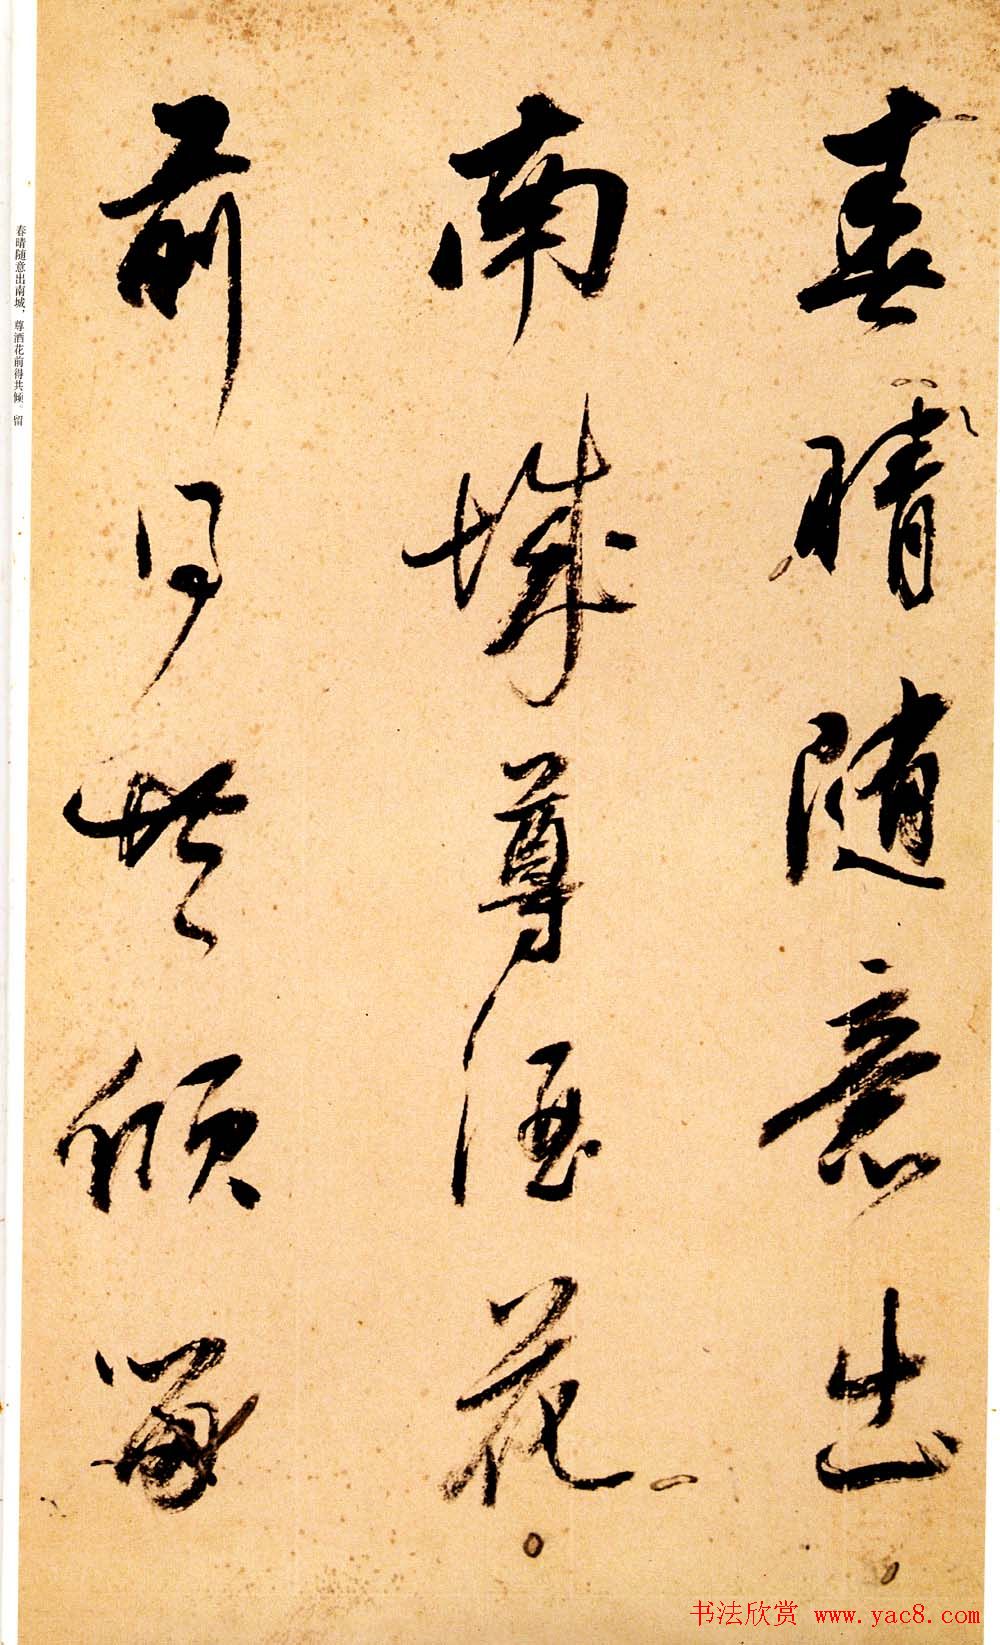 春晴随意出
南城尊酒花
前得共倾留
春晴随意出南城，尊酒花前得共倾。留
书法欣赏 www.yac8.com